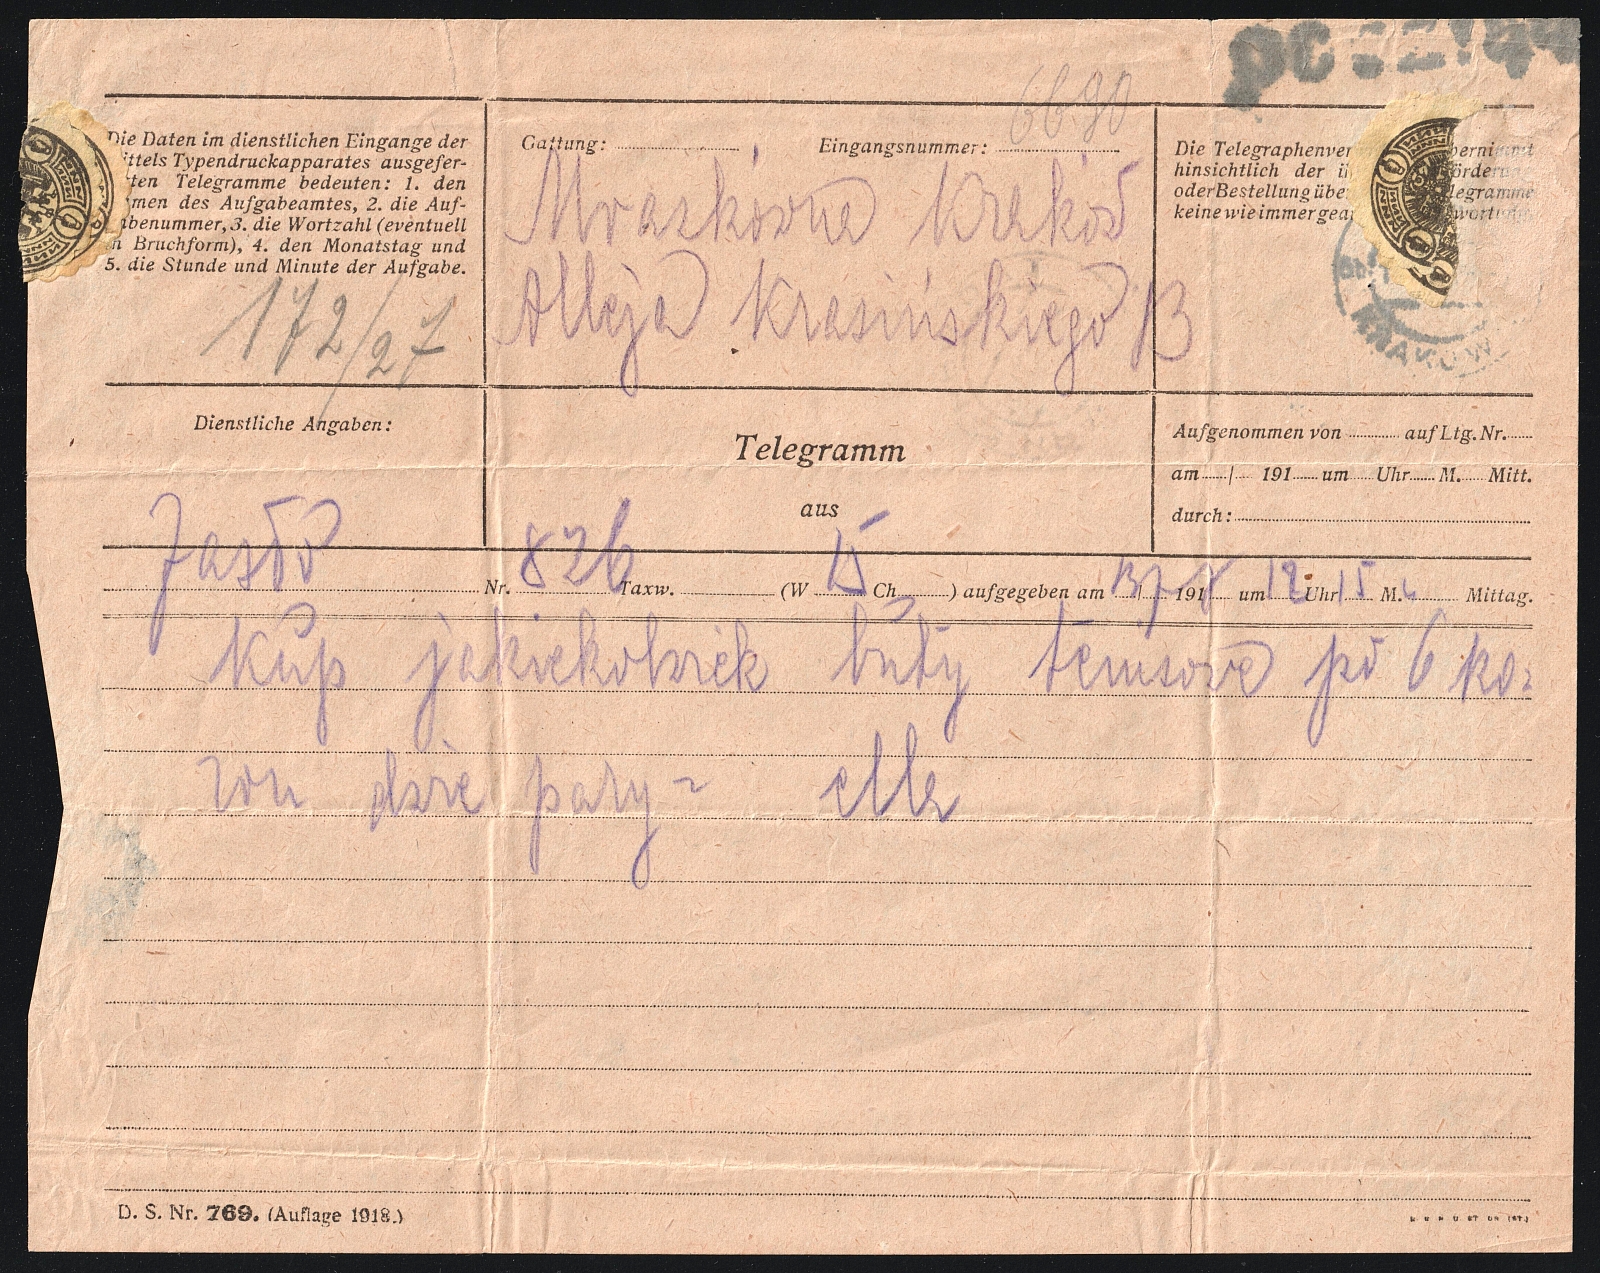 66.90
Die Daten im dienstlichen Eingange der
mittels Typendruckapparates ausgefer-
tigten Telegramme bedeuten: 1. den
Namen des Aufgabeamtes, 2. die Auf-
gabenummer, 3. die Wortzahl (eventuell
in Bruchform), 4. den Monatstag und
5. die Stunde und Minute der Aufgabe.
172/27
Gattung: Eingangsnummer:
Kraków
Alleja Krasińskiego 13
Die Telegraphenver
hinsichtlich der
oder Bestellung
keine wie immer
KRAKÓW
Dienstliche Angaben:
Telegramm
aus
Aufgenommen von auf Ltg. Nr.
am / 191 um Uhr M. Mitt.
durch:
Jasło Nr. 826 Taxw. (W 15 Ch ) aufgegeben am 13/7 191 um 12 Uhr 15 M. Mittag.
kup jakiekolwiek buty tenisowe po 6 ko=
ron dwie pary =
D. S. Nr. 769. (Auflage 1918.)